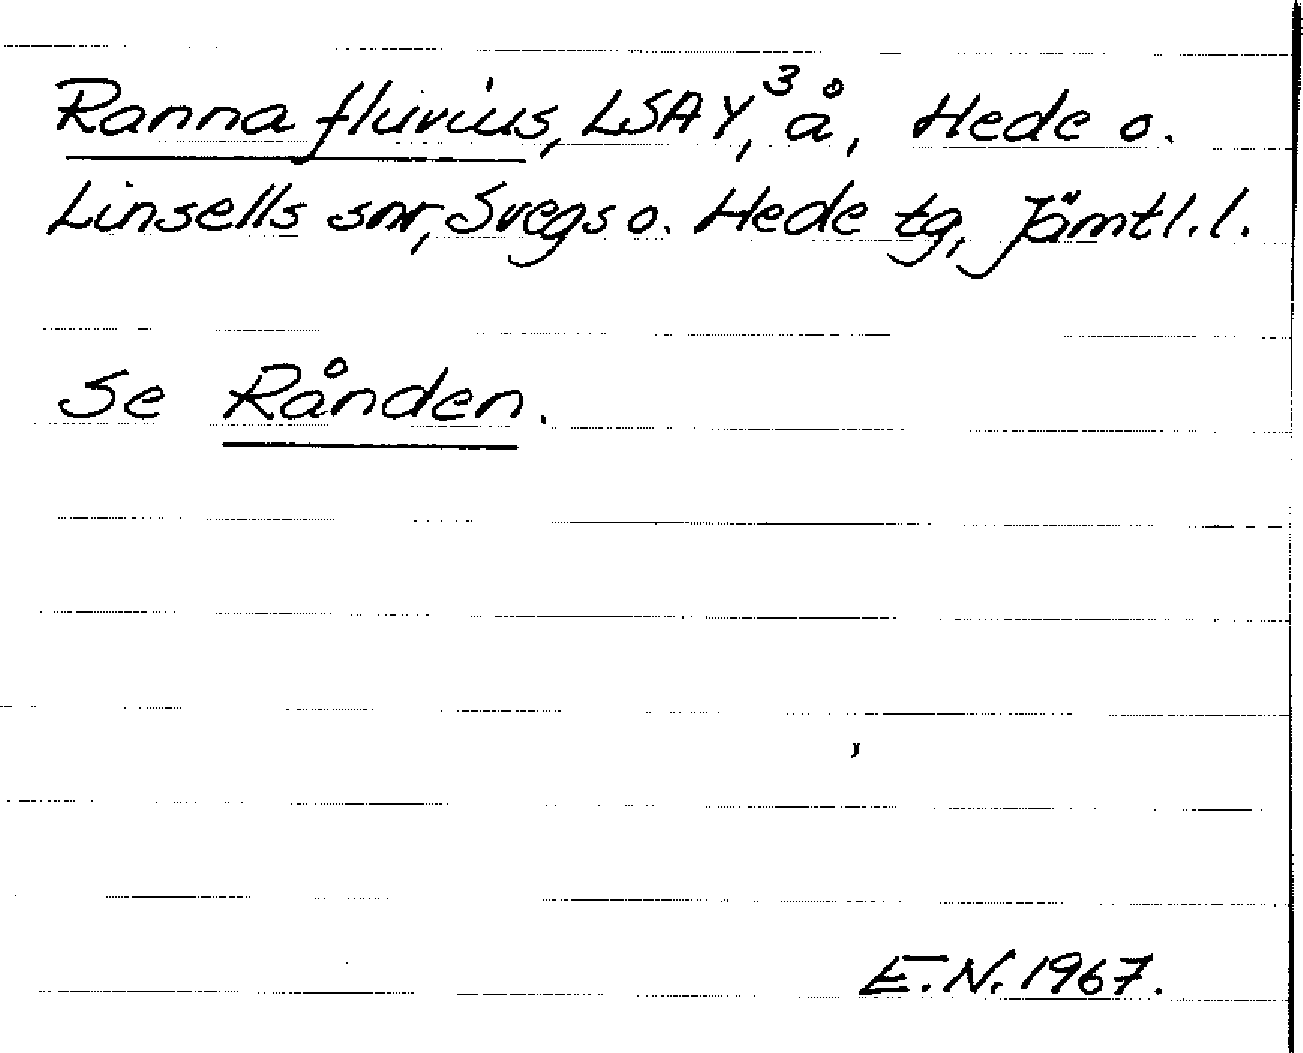 Ranna fluvius, LSA Y³, å, Hede o.
Linsells snr, Svegs o. Hede tg, Jämtl.l.
Se Rånden.
E.N. 1967.